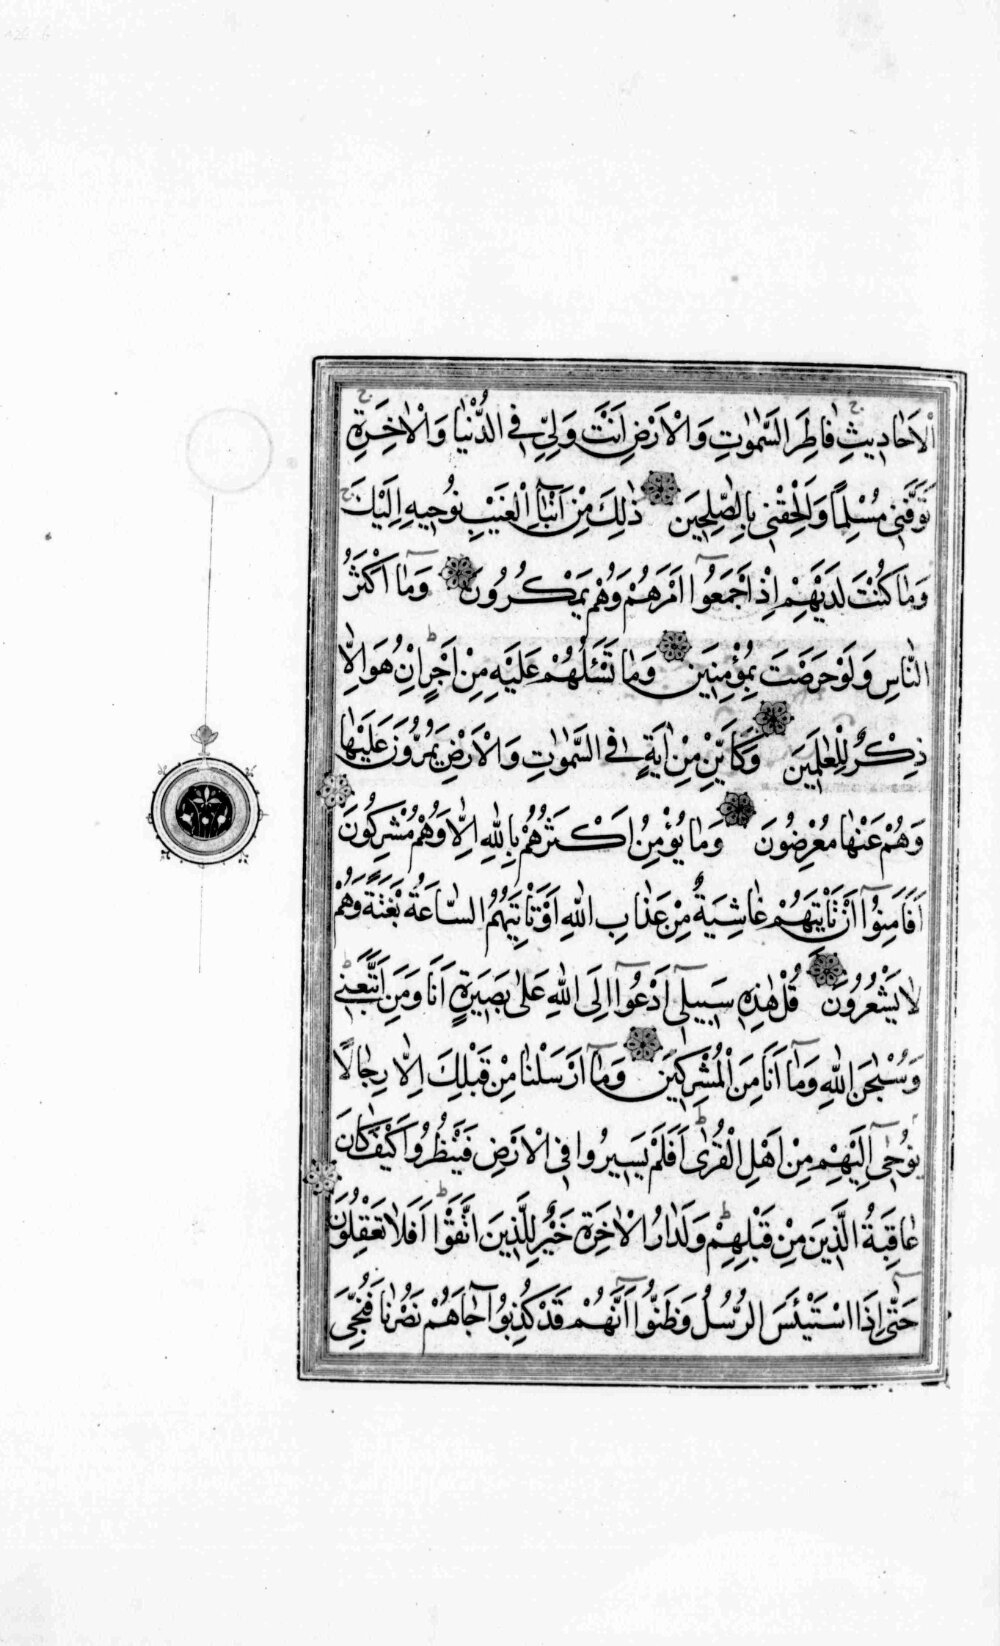 الْاَحَادِيثِ فَاطِرَ السَّمٰوَاتِ وَالْاَرْضِ اَنْتَ وَلِيّ۪ فِي الدُّنْيَا وَالْاٰخِرَةِ
تَوَفَّنِي مُسْلِمًا وَاَلْحِقْنِي بِالصَّالِحِينَ ذٰلِكَ مِنْ اَنْبَاءِ الْغَيْبِ نُوحِيهِ اِلَيْكَ
وَمَا كُنْتَ لَدَيْهِمْ اِذْ اَجْمَعُوٓا اَمْرَهُمْ وَهُمْ يَمْكُرُونَ وَمَٓا اَكْثَرُ
النَّاسِ وَلَوْ حَرَصْتَ بِمُؤْمِنِينَ وَمَا تَسْـَٔلُهُمْ عَلَيْهِ مِنْ اَجْرٍ اِنْ هُوَ اِلَّا
ذِكْرٌ لِلْعَالَمِينَ وَكَاَيِّنْ مِنْ اٰيَةٍ فِي السَّمٰوَاتِ وَالْاَرْضِ يَمُرُّونَ عَلَيْهَا
وَهُمْ عَنْهَا مُعْرِضُونَ وَمَا يُؤْمِنُ اَكْثَرُهُمْ بِاللّٰهِ اِلَّا وَهُمْ مُشْرِكُونَ
اَفَاَمِنُوٓا اَنْ تَاْتِيَهُمْ غَاشِيَةٌ مِنْ عَذَابِ اللّٰهِ اَوْ تَاْتِيَهُمُ السَّاعَةُ بَغْتَةً وَهُمْ
لَا يَشْعُرُونَ قُلْ هٰذِهِ سَبِيلِٓي اَدْعُوٓا اِلَى اللّٰهِ عَلٰى بَصِيرَةٍ اَنَا وَمَنِ اتَّبَعَنِي
وَسُبْحٰنَ اللّٰهِ وَمَٓا اَنَا مِنَ الْمُشْرِكِينَ وَمَٓا اَرْسَلْنَا مِنْ قَبْلِكَ اِلَّا رِجَالًا
نُوحِٓي اِلَيْهِمْ مِنْ اَهْلِ الْقُرٰى اَفَلَمْ يَسِيرُوا فِي الْاَرْضِ فَيَنْظُرُوا كَيْفَ كَانَ
عَاقِبَةُ الَّذِينَ مِنْ قَبْلِهِمْ وَلَدَارُ الْاٰخِرَةِ خَيْرٌ لِلَّذِينَ اتَّقَوْا اَفَلَا تَعْقِلُونَ
حَتّٰٓى اِذَا اسْتَيْـَٔسَ الرُّسُلُ وَظَنُّوٓا اَنَّهُمْ قَدْ كُذِبُوا جَٓاءَهُمْ نَصْرُنَا فَنُجِّيَ